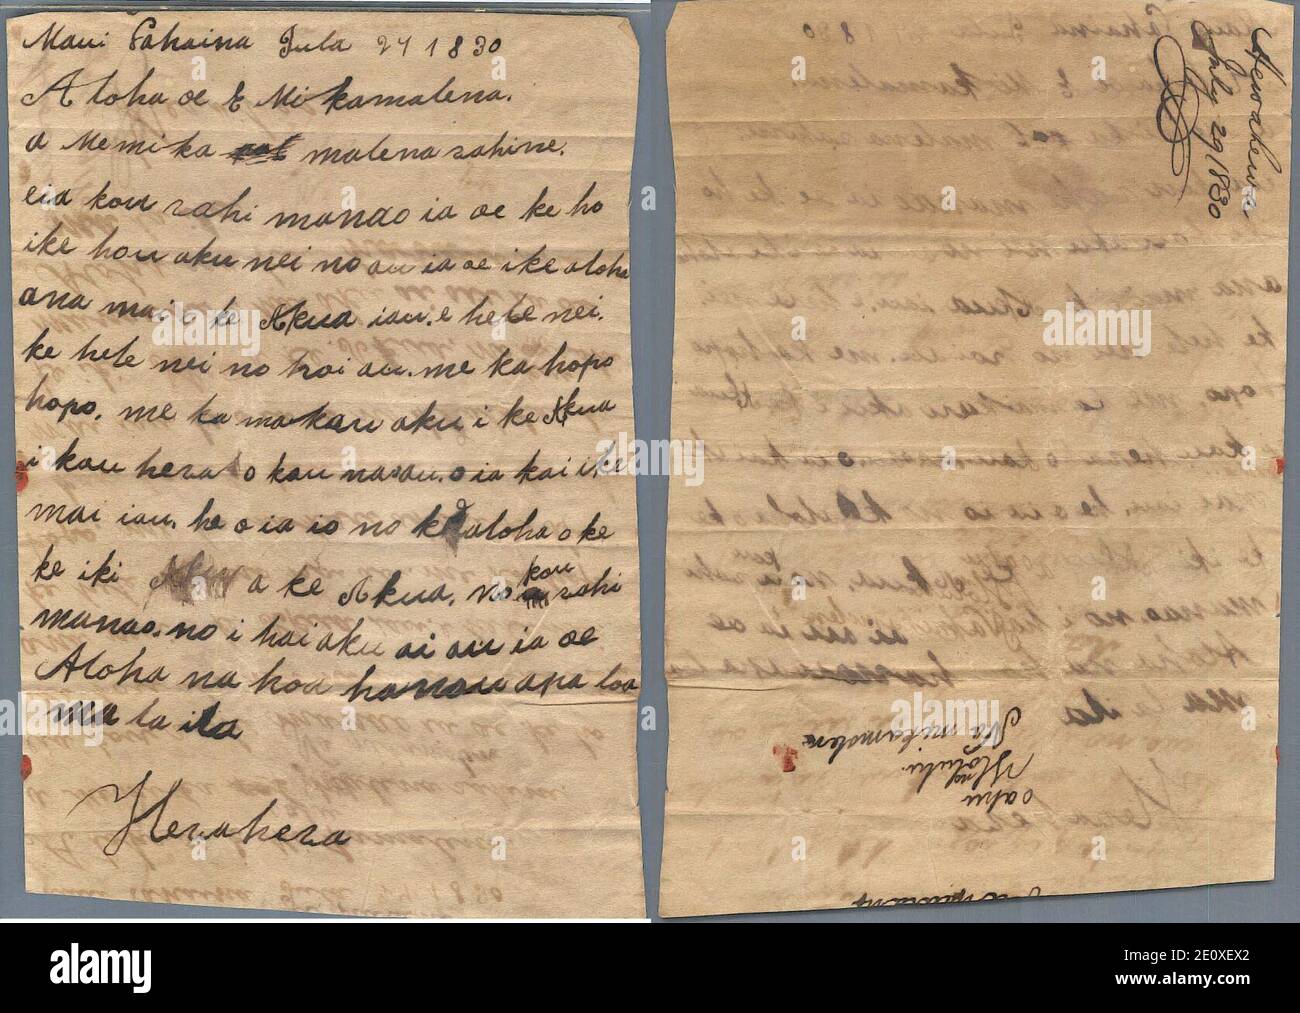 Maui Lahaina Iula 27 1830
Aloha oe E Mi kamalena.
a Me mi ka malena wahine.
eia kou wahi manao ia oe ke ho
ike hou aku nei no au ia oe ike aloha
ana mai e ke Akua iau. e hele nei.
ke hele nei no hoi au. me ka hopo
hopo. me ka makau aku i ke Akua
i kou hewa o kou naau. o ia kai ike
mai iau. he o ia io no ke aloha o ke
ke iki a ke Akua. no kou wahi
manao. no i hai aku ai au ia oe
Aloha na hoa hanau apa loa
ma la ila
Hewahewa
Hewahewa
July 29, 1830
Na mikamalena
Honolulu
Oahu
alamy
Image ID: 2E0XEX2
www.alamy.com